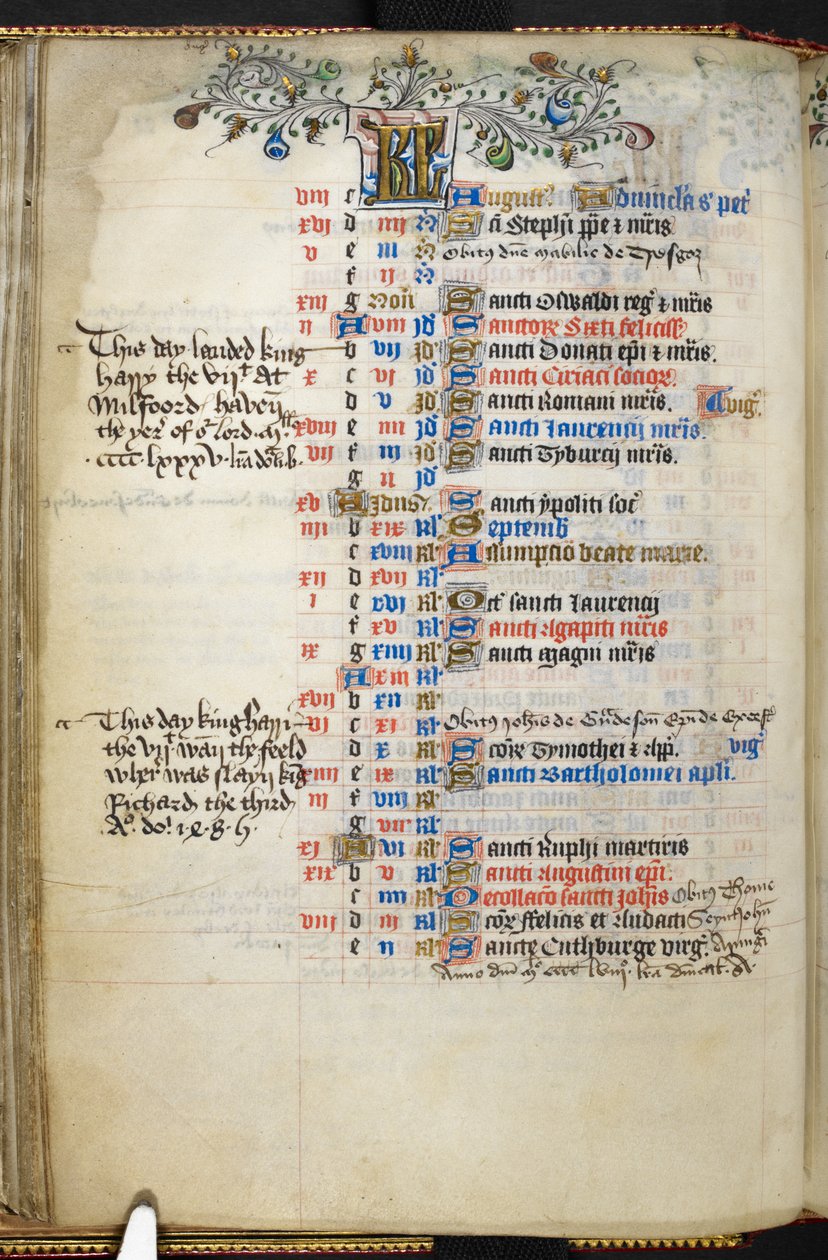 KL
viij c Augusti Aduincla s petˀ
xvj d iiij N Sci Stephi ppe et mris
v e iij N Obitus dne Mabilie de Tresgoz
f ij N
xiij g Non Sancti Oswaldi regˀ et mris
ij A viij Jd Sanctorˀ Sixti feliciss
b vij Jd Sancti Donati epi et mris.
x c vj Jd Sancti Ciriaci sociorˀ.
d v Jd Sancti Romani mris. vigˀ.
xviij e iiij Jd Sancti Laurencij mris.
vij f iij Jd Sancti Tyburcij mris.
g ij Jd
xv A Jdus. Sancti ypoliti socˀ
iiij b xix kl Septemb
c xviij kl Assumpcio beate marie.
xij d xvij kl
i e xvj kl Oct sancti Laurencij
f xv kl Sancti Agapiti mris
ix g xiiij kl Sancti Magni mris
A xiij kl
xvij b xij kl
vi c xi kl Obitus Johis de
d x kl Scorˀ Tymothei et App. vigˀ
xiiij e ix kl Sancti Bartholomei apli.
iij f viij kl
g vij kl
xj A vi kl Sancti Ruphi martiris
xix b v kl Sancti Augustini epi.
c iiij kl Decollaco sancti Johis Obitus Thome
viij d iij kl Scorˀ ffelicis et Audacti Seynt John
e ij kl Sancte Cuthburge virgˀ.
Anno dni Mo cccc lviijo. lra dnicalˀ. A.
This day landed king
harry the vijt at
Milfoord haven
the yerˀ of oˀ lord Mˀ.
cccc.lxxxv. lra donˀ. b.
This day king harri
the vijt wan the feeld
wherˀ was slayn kīg
Richard the third
Aº. doˀ. 1485.